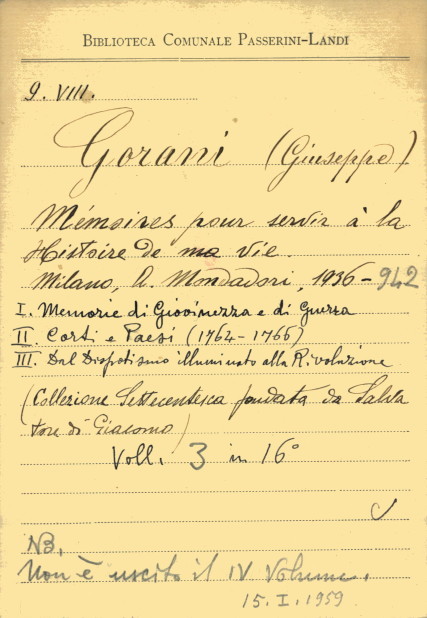 BIBLIOTECA COMUNALE PASSERINI-LANDI
9. VIII.
Gorani (Giuseppe)
Mémoires pour servir à la
Histoire de ma vie.
Milano, A. Mondadori, 1936-942
I. Memorie di Giovinezza e di Guerra
II. Corti e Paesi (1764-1766)
III. Dal Dispotismo illuminato alla Rivoluzione
(Collezione Settecentesca fondata da Salva
tore di Giacomo)
Voll. 3 in 16°
NB.
Non è uscito il IV Volume.
15. I. 1959